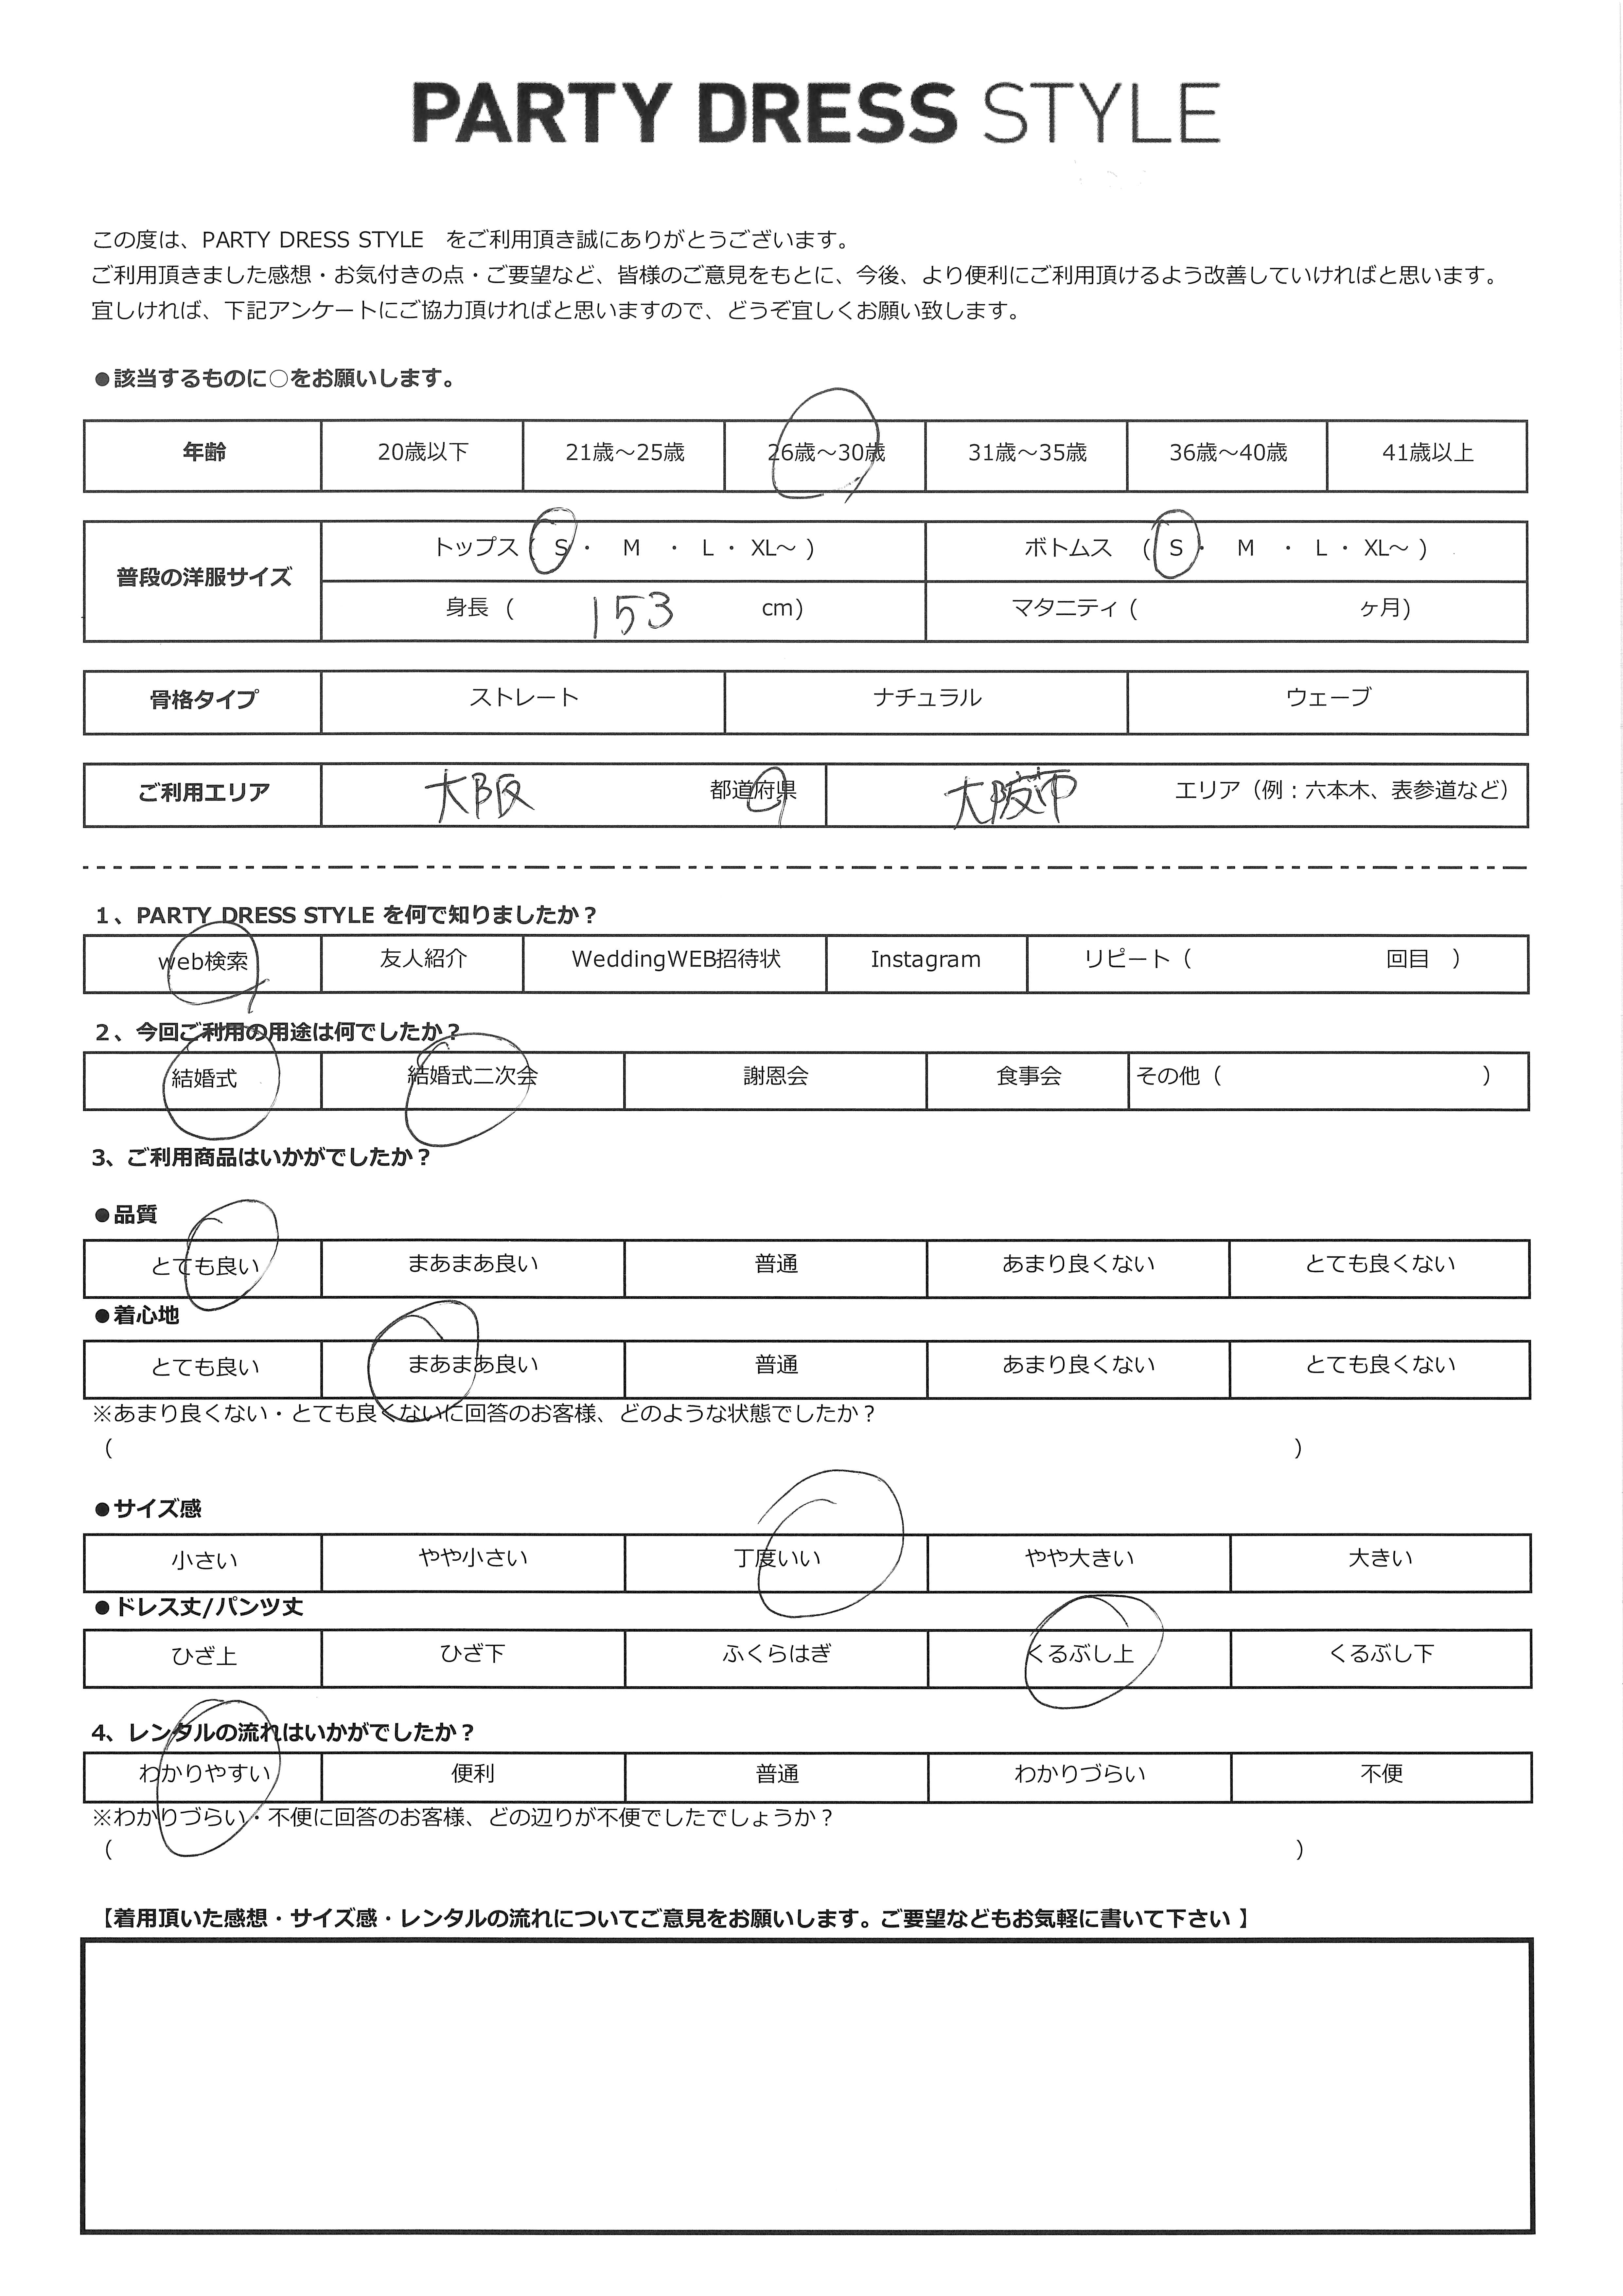 PARTY DRESS STYLE
この度は、PARTY DRESS STYLE をご利用頂き誠にありがとうございます。
ご利用頂きました感想・お気付きの点・ご要望など、皆様のご意見をもとに、今後、より便利にご利用頂けるよう改善していければと思います。
宜しければ、下記アンケートにご協力頂ければと思いますので、どうぞ宜しくお願い致します。
●該当するものに○をお願いします。
年齢 20歳以下 21歳～25歳 26歳～30歳 31歳～35歳 36歳～40歳 41歳以上
普段の洋服サイズ トップス ( S ・ M ・ L ・ XL～ ) ボトムス ( S ・ M ・ L ・ XL～ )
身長 ( 153 cm) マタニティ ( ヶ月)
骨格タイプ ストレート ナチュラル ウェーブ
ご利用エリア 大阪 都道府県 大阪市 エリア（例：六本木、表参道など）
1、PARTY DRESS STYLE を何で知りましたか？
web検索 友人紹介 WeddingWEB招待状 Instagram リピート（ 回目 ）
2、今回ご利用の用途は何でしたか？
結婚式 結婚式二次会 謝恩会 食事会 その他（ ）
3、ご利用商品はいかがでしたか？
●品質
とても良い まあまあ良い 普通 あまり良くない とても良くない
●着心地
とても良い まあまあ良い 普通 あまり良くない とても良くない
※あまり良くない・とても良くないに回答のお客様、どのような状態でしたか？
（ ）
●サイズ感
小さい やや小さい 丁度いい やや大きい 大きい
●ドレス丈/パンツ丈
ひざ上 ひざ下 ふくらはぎ くるぶし上 くるぶし下
4、レンタルの流れはいかがでしたか？
わかりやすい 便利 普通 わかりづらい 不便
※わかりづらい・不便に回答のお客様、どの辺りが不便でしたでしょうか？
（ ）
【着用頂いた感想・サイズ感・レンタルの流れについてご意見をお願いします。ご要望などもお気軽に書いて下さい 】